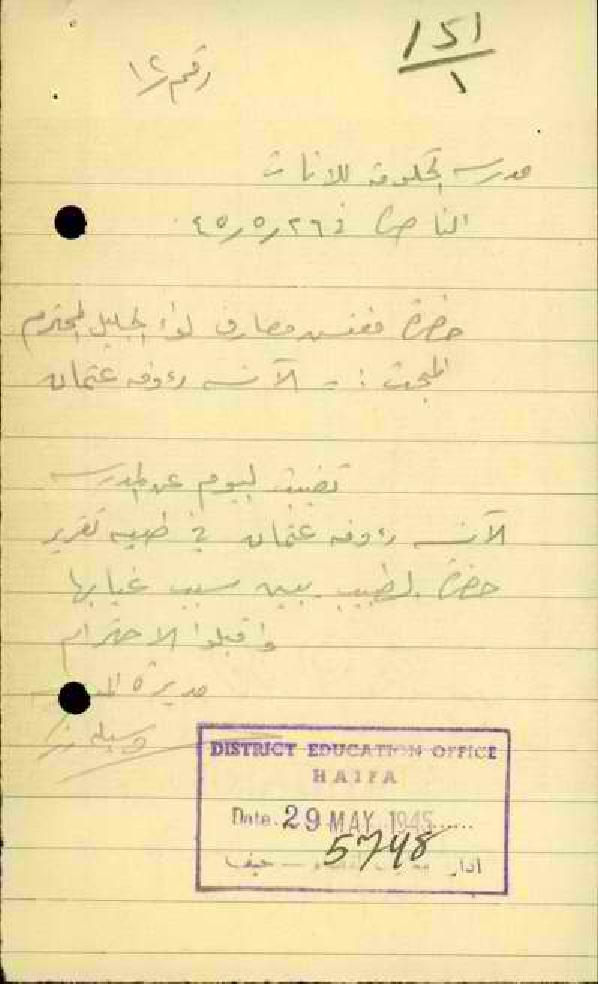 151/1
رقم ١٢
مدرسة الحكومة للاناث
الناصرة في ٢٦/٥/٤٥
حضرة مفتش معارف لواء الجليل المحترم
المبحث :- الآنسة رءوفه عثمان
تغيبت اليوم عن المدرسة
الآنسة رءوفه عثمان في طيه تقرير
حضرة الطبيب يبين سبب غيابها
واقبلوا الاحترام
مديرة
DISTRICT EDUCATION OFFICE
HAIFA
Date. 29 MAY 1945
5748
حيفا